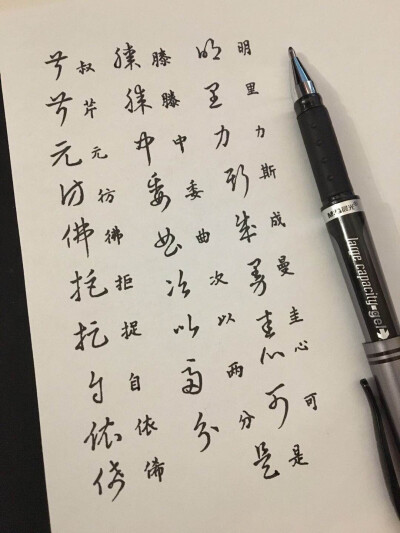 叔 叔 滕 滕 明 明
芹 芹 滕 滕 里 里
元 元 中 中 力 力
彷 彷 委 委 斯 斯
彿 彿 曲 曲 成 成
拒 拒 次 次 曼 曼
捉 捉 以 以 圭 圭
自 自 两 两 心 心
依 依 分 分 可 可
俙 俙 是 是
M&G晨光
large capacity gel